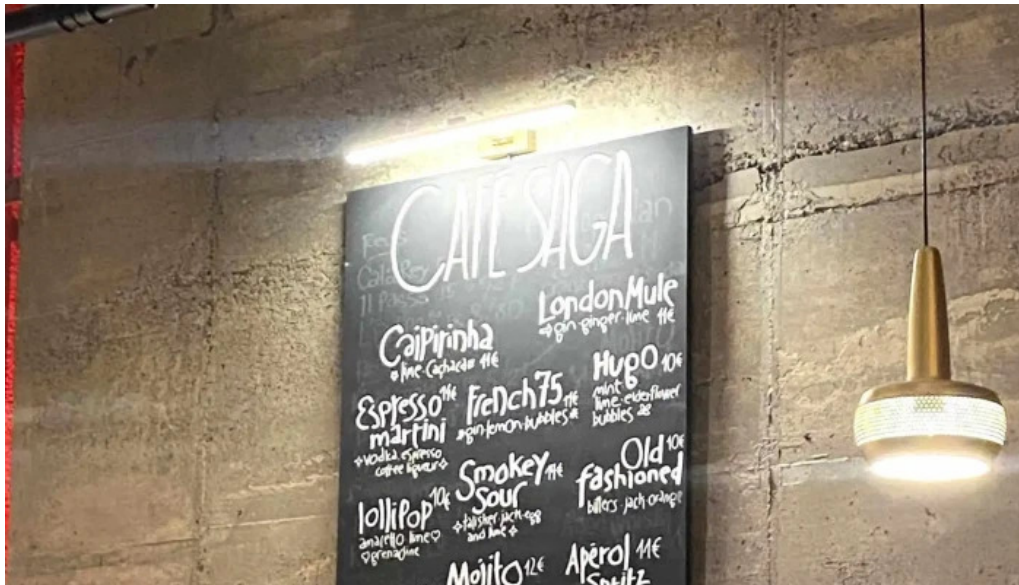 CAFÉ SAGA
London Mule
gin·ginger·lime 11€
Caipirinha
lime·Cachaça 11€
Hugo 10€
mint
lime·elderflower
bubbles
Espresso 11€
martini
vodka·espresso
coffee liqueur
French 75 11€
gin·lemon·bubbles
Old 10€
fashioned
bitters·jack·orange
Smokey 11€
Sour
talisker·jack·egg
and lime
lollipop 10€
amaretto lime
grenadine
Mojito 12€
Apérol 11€
Spritz